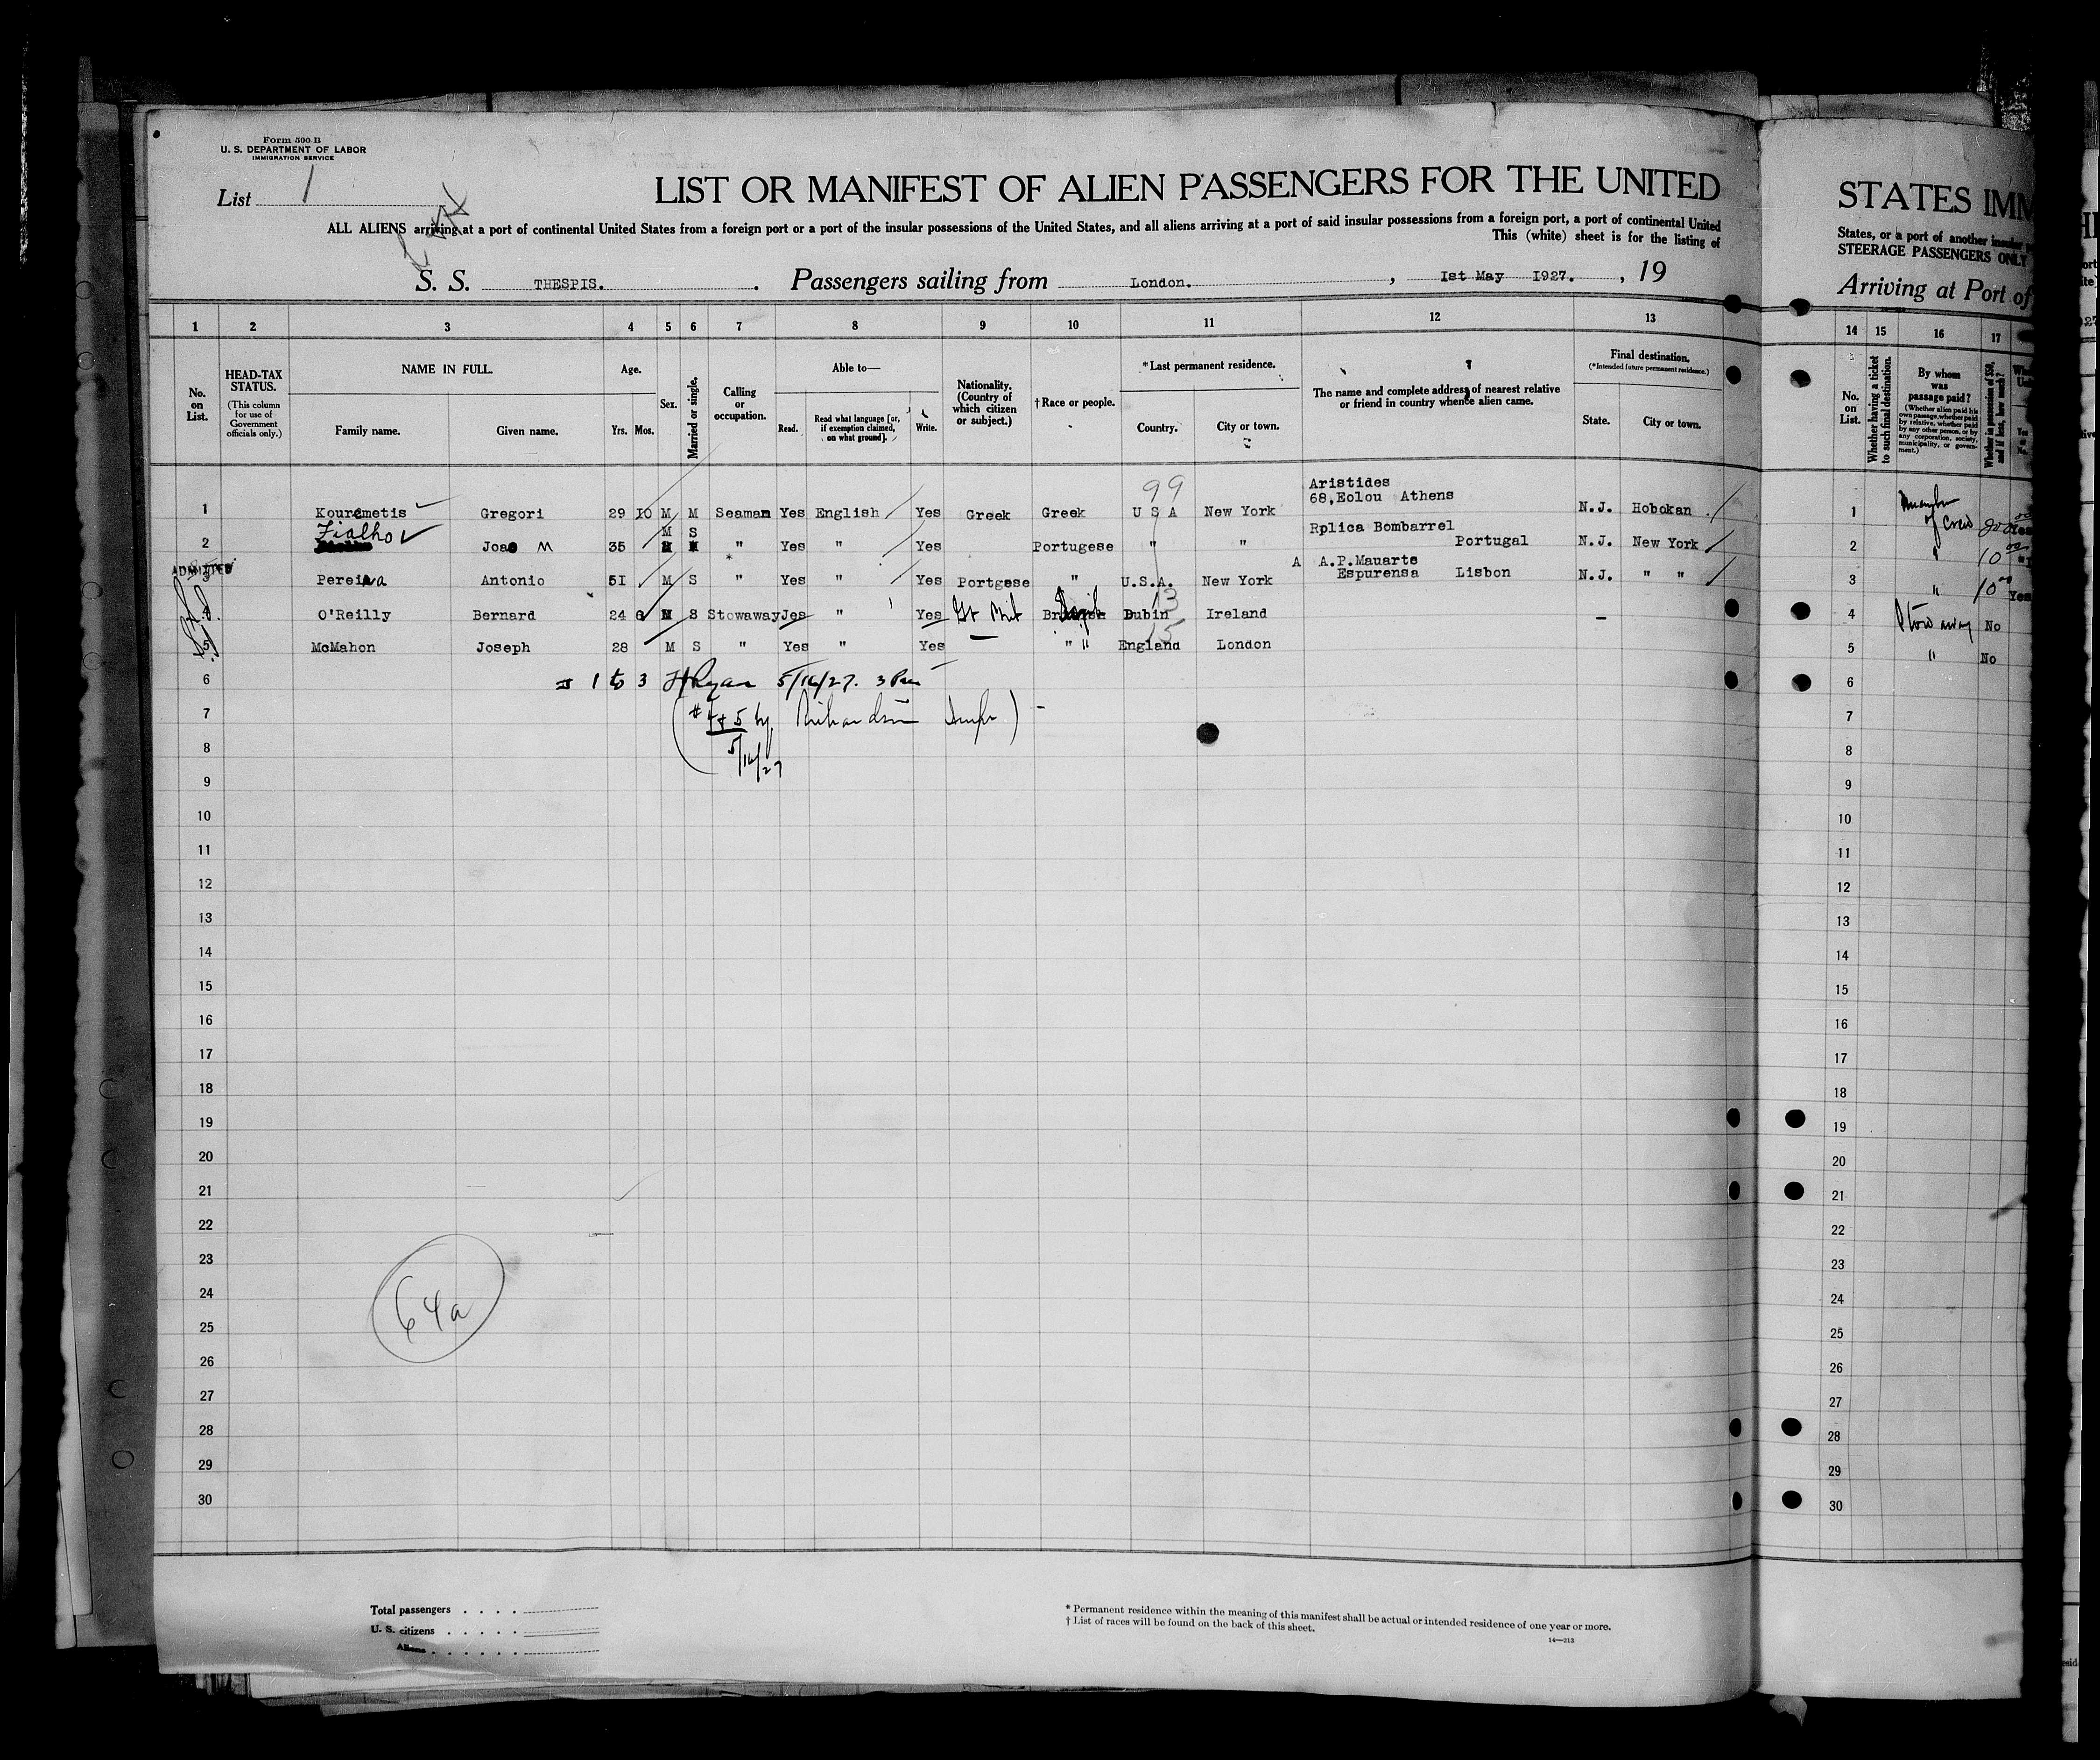 Form 500 B
U. S. DEPARTMENT OF LABOR
IMMIGRATION SERVICE
List 1
LIST OR MANIFEST OF ALIEN PASSENGERS FOR THE UNITED
ALL ALIENS arriving at a port of continental United States from a foreign port or a port of the insular possessions of the United States, and all aliens arriving at a port of said insular possessions from a foreign port, a port of continental United
This (white) sheet is for the listing of
S. S. THESPIS. Passengers sailing from London. , 1st May 1927. , 19
STATES IMM
States, or a port of another insular
STEERAGE PASSENGERS ONLY
Arriving at Port of
1 2 3 4 5 6 7 8 9 10 11 12 13
14 15 16 17
No. on List.
HEAD-TAX STATUS.
(This column for use of Government officials only.)
NAME IN FULL.
Family name. Given name.
Age.
Yrs. Mos.
Sex.
Married or single.
Calling or occupation.
Able to—
Read. Read what language [or, if exemption claimed, on what ground]. Write.
Nationality. (Country of which citizen or subject.)
†Race or people.
*Last permanent residence.
Country. City or town.
The name and complete address of nearest relative or friend in country whence alien came.
Final destination.
(*Intended future permanent residence.)
State. City or town.
No. on List.
Whether having a ticket to such final destination.
By whom was passage paid?
(Whether alien paid his own passage, whether paid by relative, whether paid by any other person, or by any corporation, society, municipality, or government.)
Whether in possession of $50, and if less, how much?
99
Aristides
1 Kouremetis Gregori 29 10 M M Seaman Yes English Yes Greek Greek U S A New York 68,Eolou Athens N.J. Hobokan 1 Member of crew
Fialho M S Rplica Bombarrel
2 Joao M 35 " Yes " Yes Portugese " " Portugal N.J. New York 2 " 10 00
ADMITTED A A.P.Mauarte
3 Pereira Antonio 51 M S " Yes " Yes Portgese " U.S.A. New York Espurensa Lisbon N.J. " " 3 " 10 00 Yes
13
4 O'Reilly Bernard 24 6 M S Stowaway Jes " Yes Gt Brit Dubin Ireland - 4 Stow away No
15
5 McMahon Joseph 28 M S " Yes " Yes " " England London 5 " No
6 1 to 3 Ryan 5/16/27. 3 Pm 6
7 (# 4 & 5 by Richardson Insp) 7
5/16/27
8 8
9 9
10 10
11 11
12 12
13 13
14 14
15 15
16 16
17 17
18 18
19 19
20 20
21 21
22 22
23 23
24 24
25 25
26 26
27 27
28 28
29 29
30 30
64a
Total passengers . . . .
U. S. citizens . . . . .
Aliens . . . . . .
* Permanent residence within the meaning of this manifest shall be actual or intended residence of one year or more.
† List of races will be found on the back of this sheet.
14—213